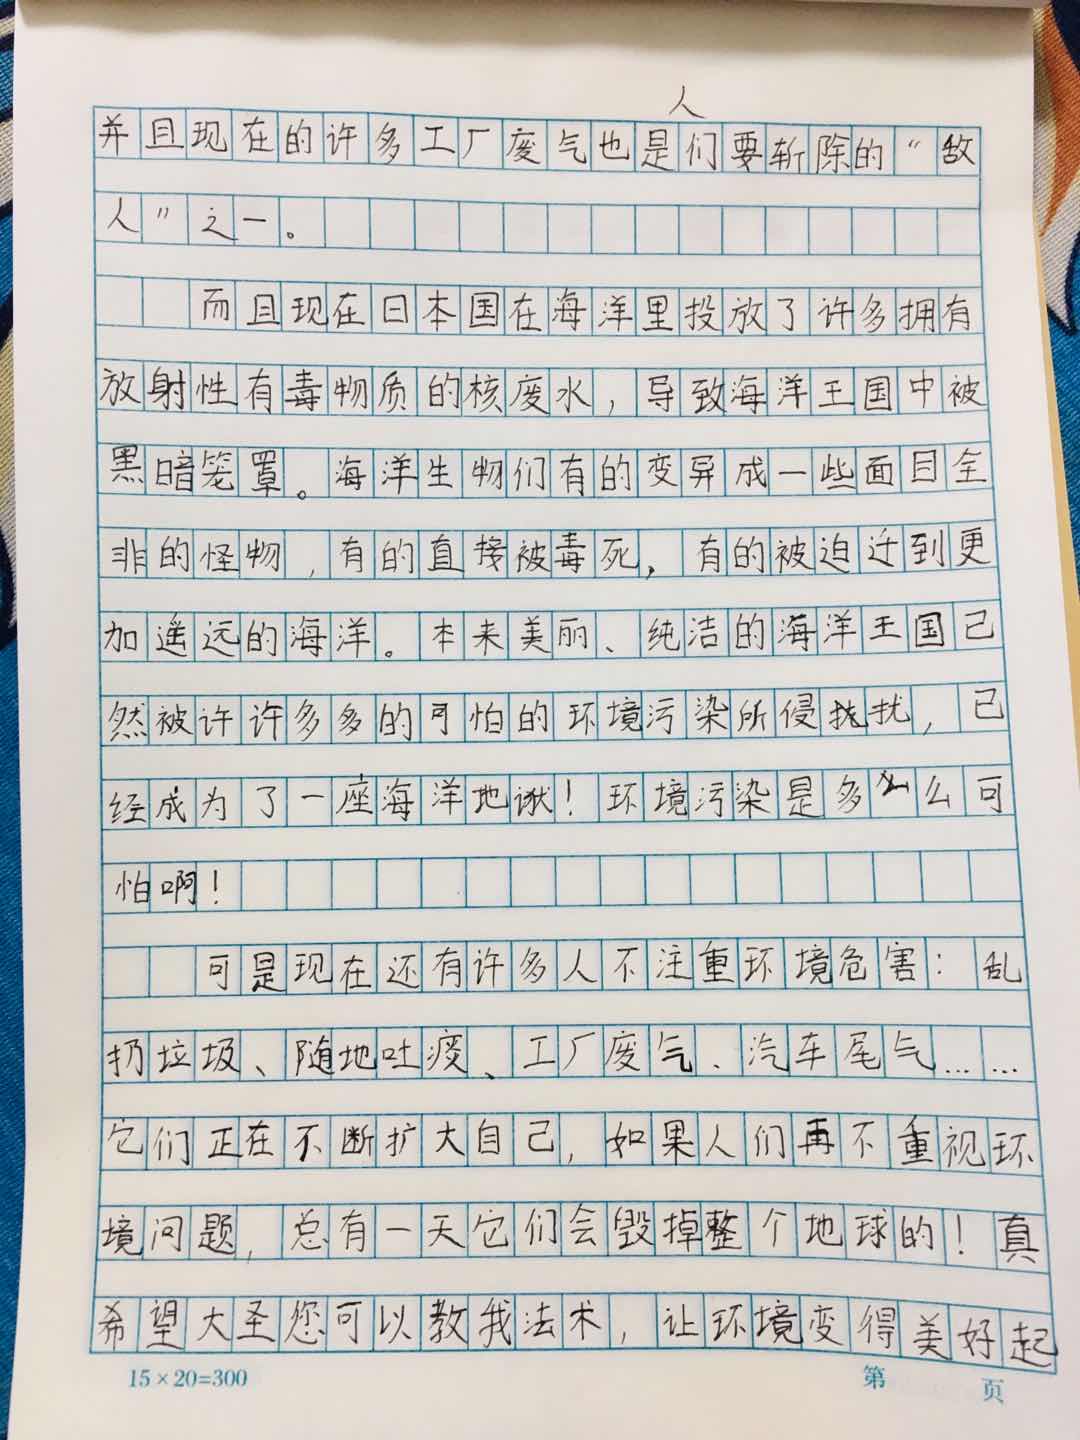 人
并且现在的许多工厂废气也是们要斩除的“敌
人”之一。
而且现在日本国在海洋里投放了许多拥有
放射性有毒物质的核废水，导致海洋王国中被
黑暗笼罩。海洋生物们有的变异成一些面目全
非的怪物，有的直接被毒死，有的被迫迁到更
加遥远的海洋。本来美丽、纯洁的海洋王国已
然被许许多多的可怕的环境污染所侵扰扰，已
经成为了一座海洋地狱！环境污染是多么么可
怕啊！
可是现在还有许多人不注重环境危害：乱
扔垃圾、随地吐痰、工厂废气、汽车尾气……
它们正在不断扩大自己，如果人们再不重视环
境问题，总有一天它们会毁掉整个地球的！真
希望大圣您可以教我法术，让环境变得美好起
15×20=300
第 页